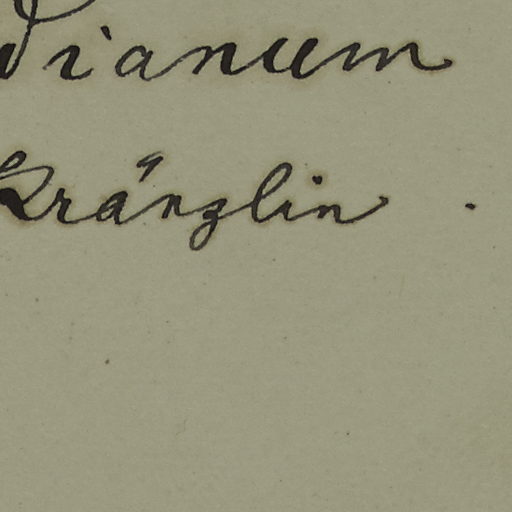 dianum
Kränzlin .